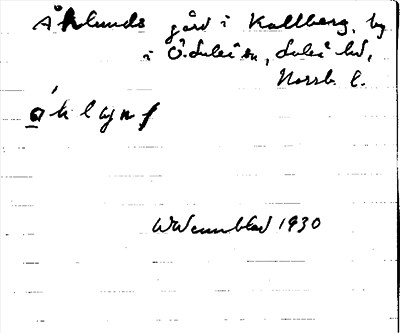 Åhlunds gård i Kallberg, by
i Ö. Luleå sn, Luleå hd,
Norrb. l.
W Wennblad 1930